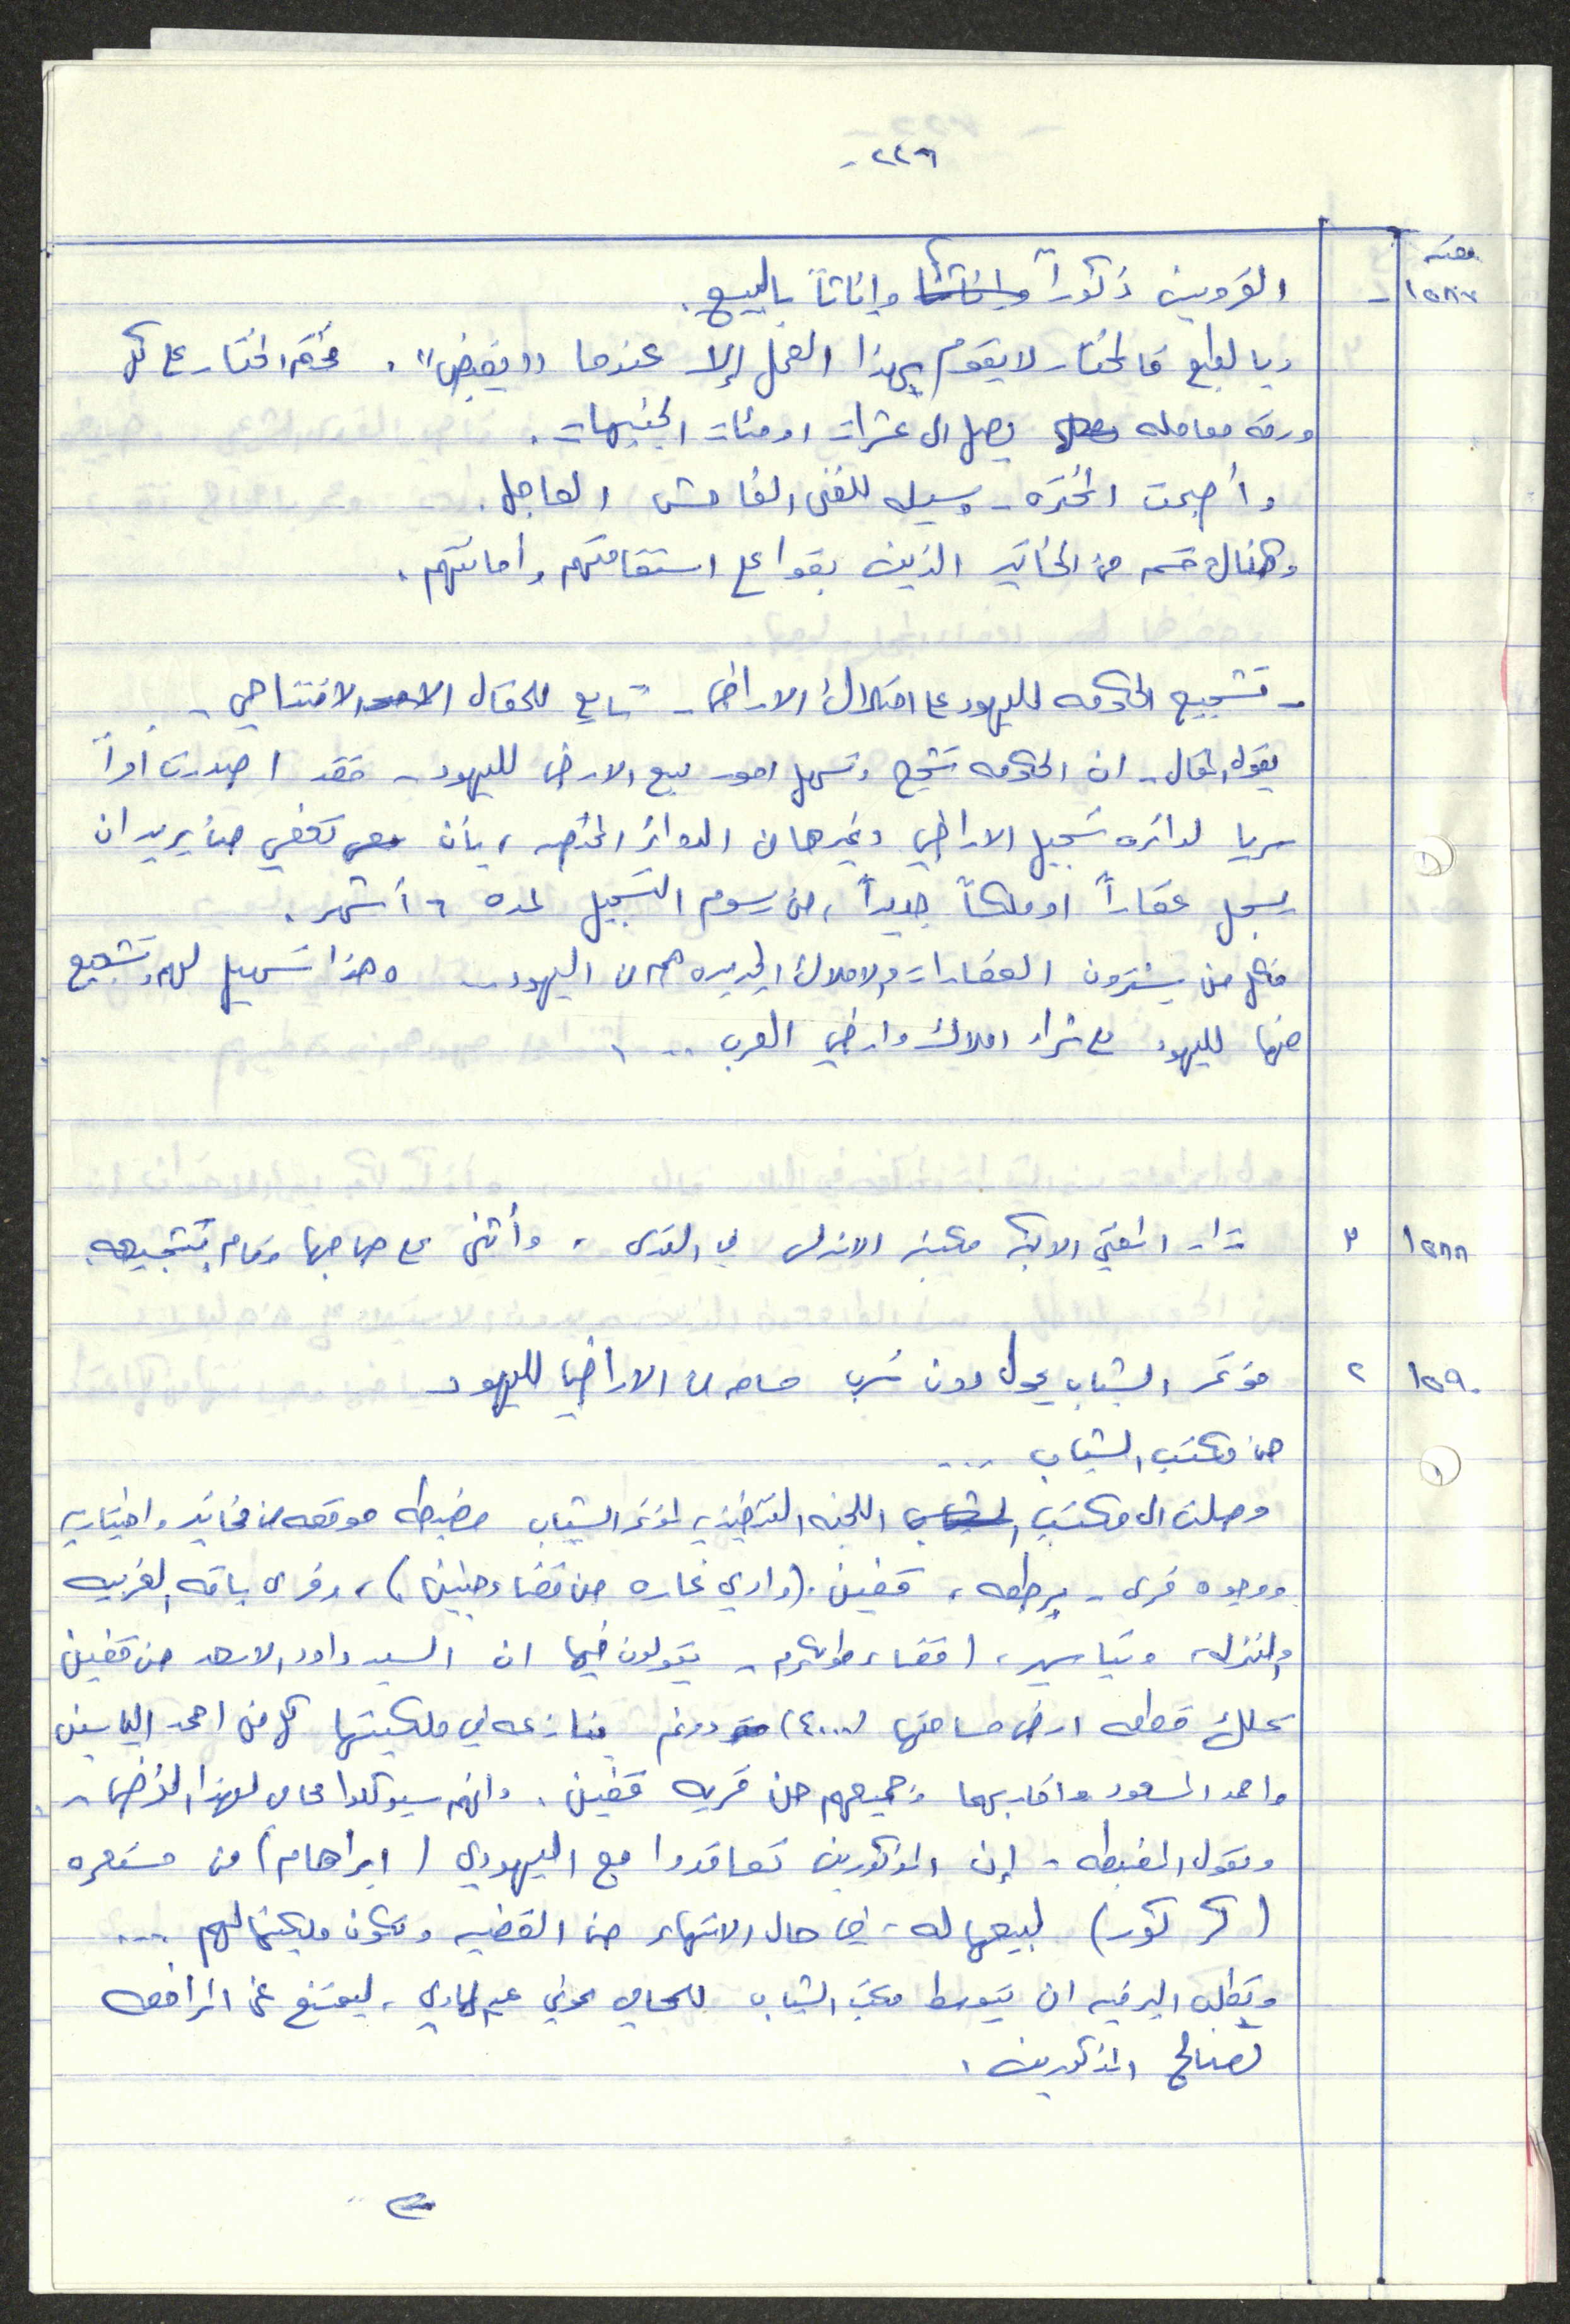 -٢٢٦-
تتمه
١٥٨٧ - القرويين ذكوراً وإناثاً بالبيع.
وبالطبع فالمختار لا يقوم بهذا العمل إلا عندما "يقبض". فختم المختار على كل
ورقه معامله يصل الى عشرات او مئات الجنيهات.
وأصبحت المختره - وسيله للغنى الفاحش العاجل.
وهنالك قسم من المخاتير الذين بقوا على استقامتهم وأمانتهم.
- تشجيع الحكومه لليهود على امتلاك الاراضي - تابع للمقال الافتتاحي -
يقول المقال - ان الحكومه تشجع وتسهل امور بيع الارض لليهود - فقد اصدرت امراً
سريا لدائره تسجيل الاراضي وغيرها من الدوائر المختصه، بأن تعفي من يريد ان
يسجل عقاراً او ملكاً جديداً، من رسوم التسجيل لمده ٦ أشهر.
فكل من يشترون العقارات والاملاك الجديده هم من اليهود... وهذا تسهيل لهم وتشجيع
منها لليهود على شراء املاك واراضي العرب ...
١٥٨٨ ٣ زار المفتي الاكبر مكتبة الاندلس في القدس، وأثنى على صاحبها وقام بتشجيعه.
١٥٩٠ ٢ مؤتمر الشباب يحول دون تسرب مساحه من الاراضي لليهود
١ من مكتب الشباب ...
وصلت الى مكتب اللجنه التنفيذيه لمؤتمر الشباب مضبطه موقعه من مخاتير واختياريه
ووجوه قرى - برطعه، قفين. (وادي عاره من قضاء جنين)، وقرى باقه الغربيه
والنزله، وتياسير، (قضاء طولكرم - يقولون فيها ان السيد داود الاسعد من قفين
يملك قطعه ارض مساحتها (٤٠٠٠) دونم ينازعه في ملكيتها كل من احمد الياسين
واحمد المسعود واقاربهما وجميعهم من قريه قفين. وانهم سيوكلوا محام لهذا الغرض -.
وتقول المضبطه - إن المذكورين تعاقدوا مع اليهودي (ابراهام) من مستعمره
(كركور) لبيعها له، في حال الانتهاء من القضيه وتكون ملكيتها لهم ...
وتطلب البرقيه ان يتوسط مكتب الشباب للمحامي عوني عبد الهادي، ليمتنع عن المرافعه
لصالح المذكورين.